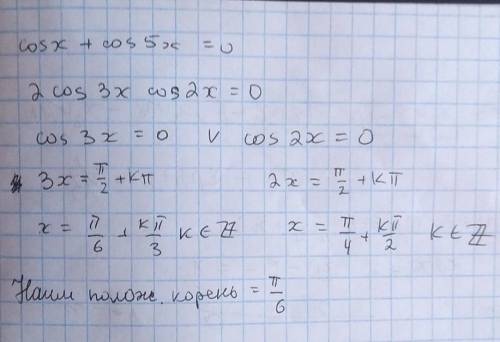 cosx + cos 5x = 0
2 cos 3x cos 2x = 0
cos 3x = 0 ∨ cos 2x = 0
3x = π/2 + kπ 2x = π/2 + kπ
x = π/6 + kπ/3 k ∈ ℤ x = π/4 + kπ/2 k ∈ ℤ
Наим полож. корень = π/6